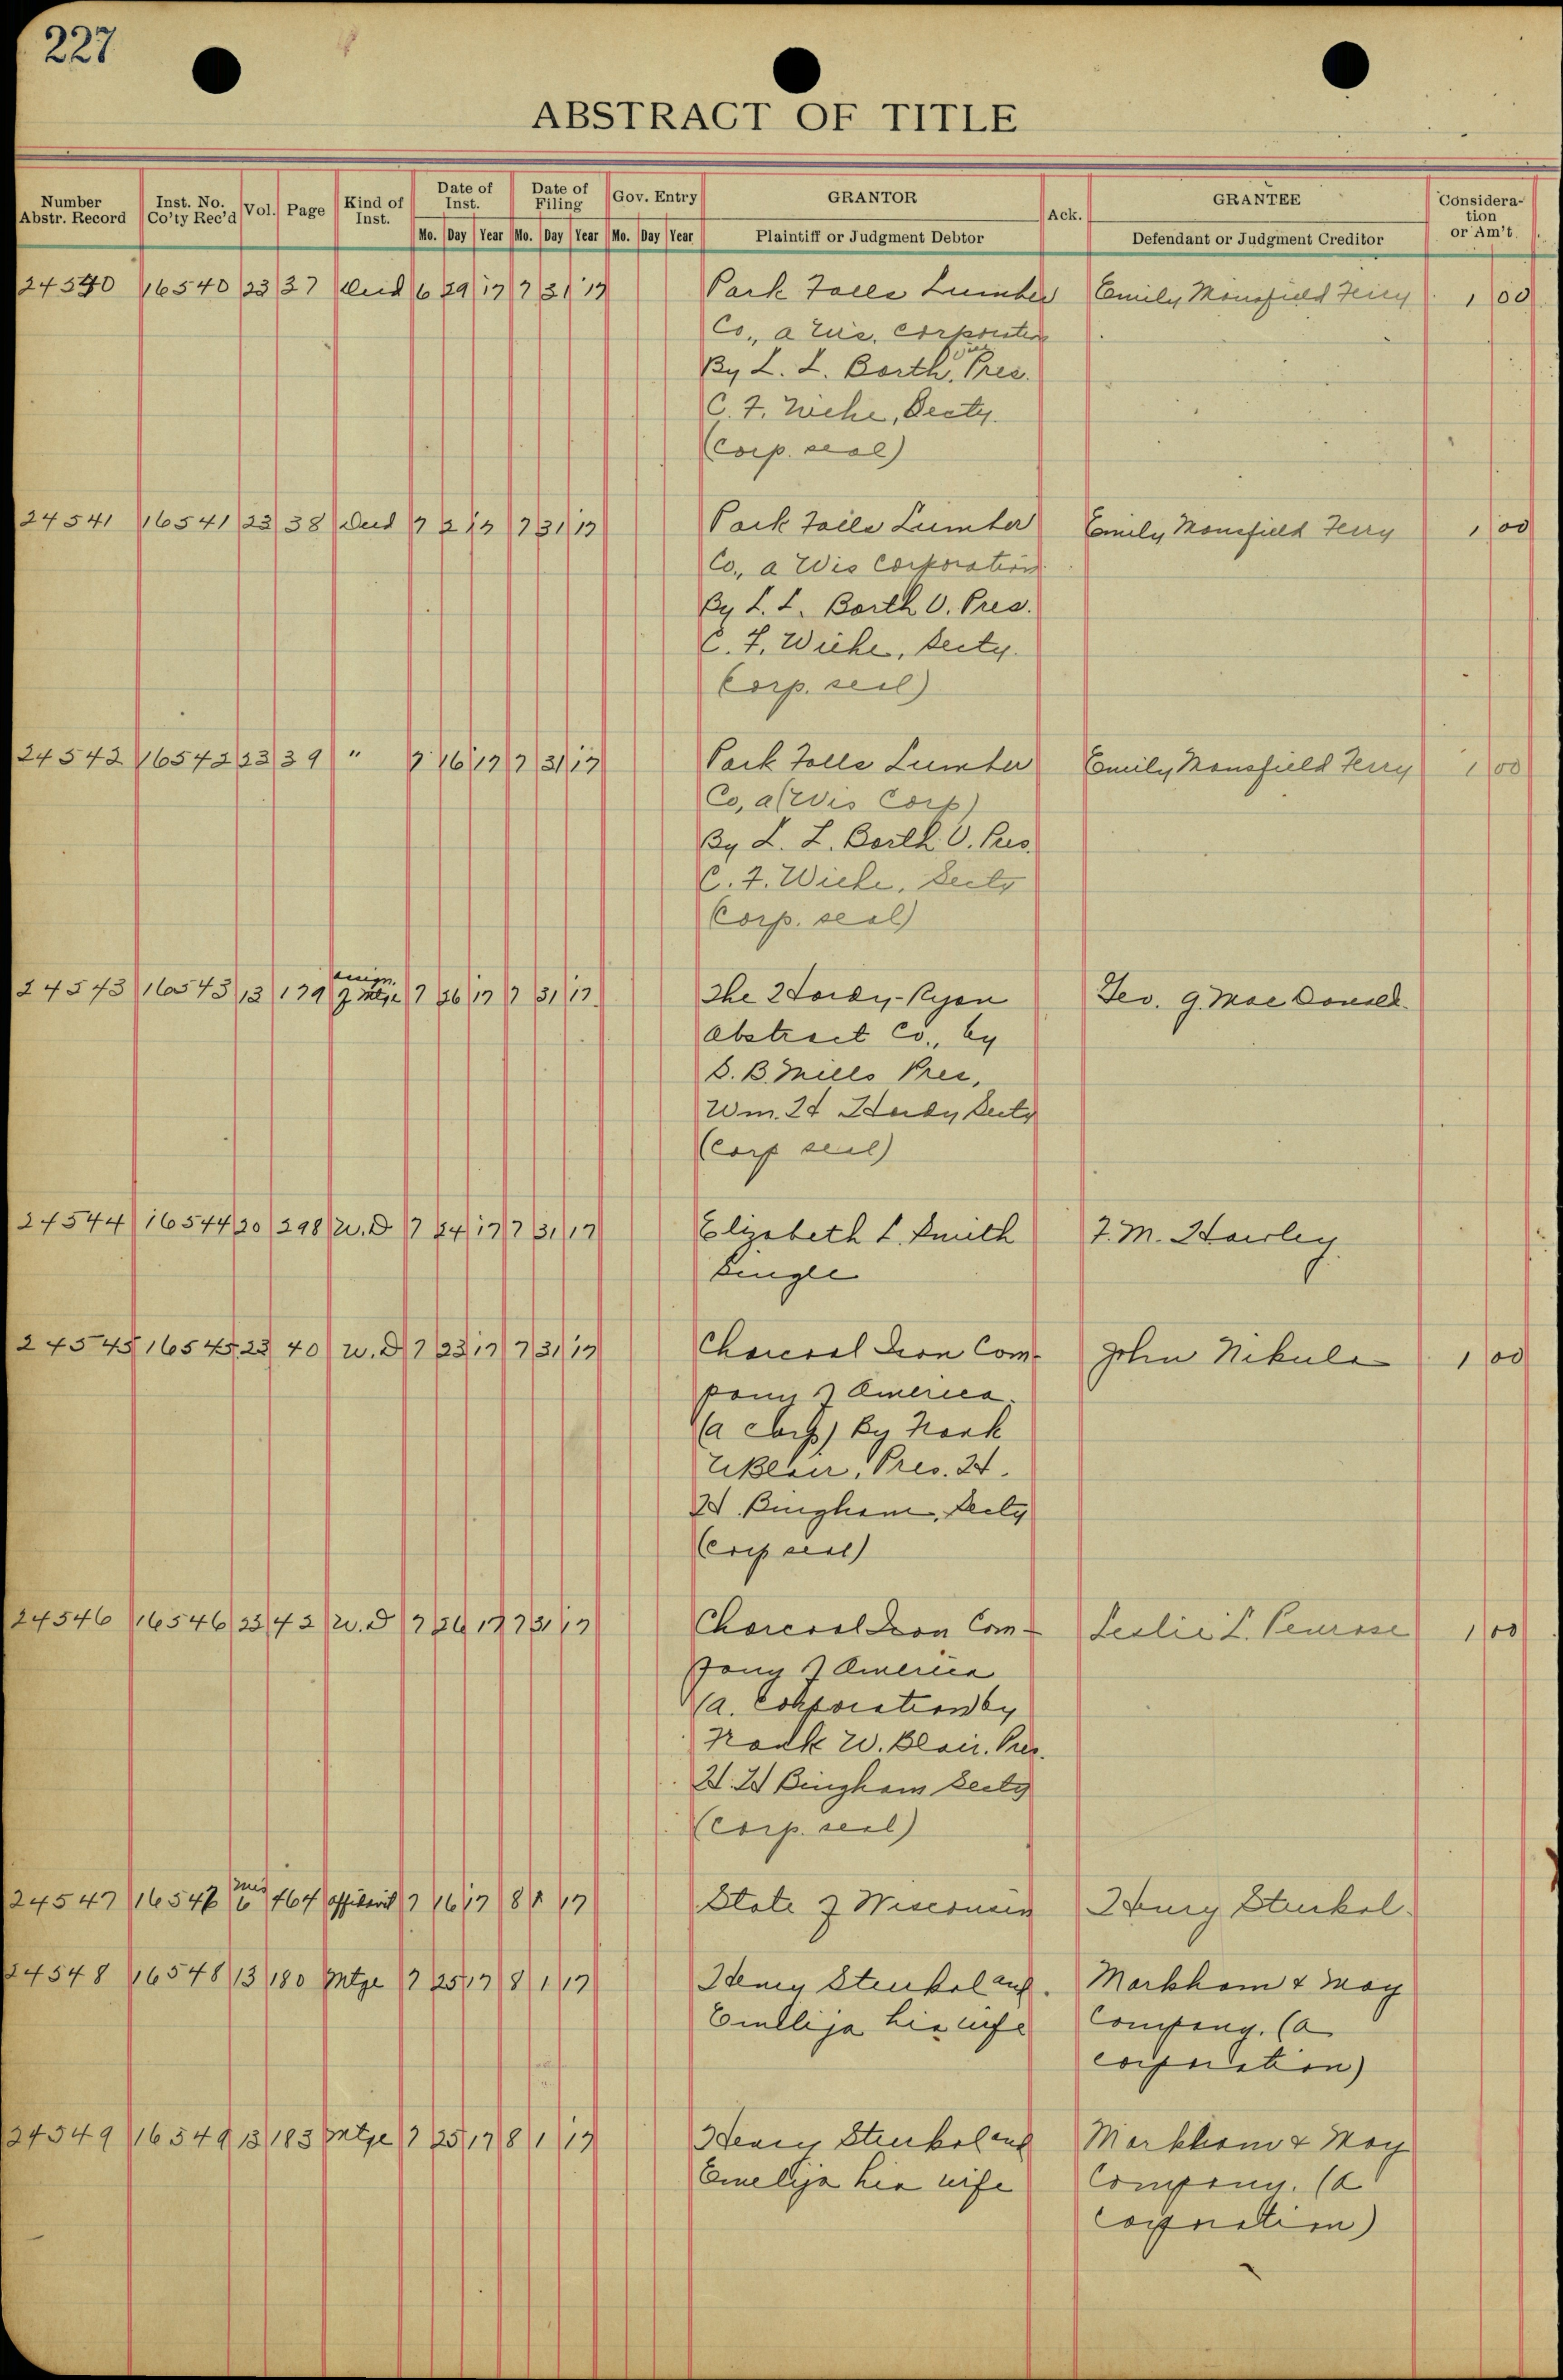 227
ABSTRACT OF TITLE
Number Abstr. Record Inst. No. Co'ty Rec'd Vol. Page Kind of Inst. Date of Inst. Date of Filing Gov. Entry GRANTOR Ack. GRANTEE Considera-tion or Am't.
Mo. Day Year Mo. Day Year Mo. Day Year Plaintiff or Judgment Debtor Defendant or Judgment Creditor
24540 16540 23 37 Deed 6 29 17 7 31 17 Park Falls Lumber Emily Mansfield Ferry 1 00
Co., a Wis. Corporation
By L. L. Barth, Vice Pres.
C. F. Wiehe, Secty.
(Corp. seal)
24541 16541 23 38 Deed 7 2 17 7 31 17 Park Falls Lumber Emily Mansfield Ferry 1 00
Co., a Wis Corporation
By L. L. Barth V. Pres.
C. F. Wiehe, Secty.
Corp. seal)
24542 16542 23 39 " 7 16 17 7 31 17 Park Falls Lumber Emily Mansfield Ferry 1 00
Co, a (Wis Corp)
By L. L. Barth V. Pres.
C. F. Wiehe, Secty
Corp. seal)
24543 16543 13 179 assign. of Mtge 7 26 17 7 31 17 The Hardy-Ryan Geo. G. MacDonald
Abstract Co., by
S. B. Mills Pres,
Wm. H Hardy Secty
(Corp seal)
24544 16544 20 298 W. D 7 24 17 7 31 17 Elizabeth L. Smith F. M. Hawley
Single
24545 16545 23 40 W. D 7 23 17 7 31 17 Charcoal Iron Com- John Nikula 1 00
pany of America.
(a Corp) By Frank
W Blair, Pres. H.
H. Bingham, Secty
(Corp seal)
24546 16546 23 42 W. D 7 26 17 7 31 17 Charcoal Iron Com- Leslie L. Penrose 1 00
pany of America
(a. Corporation by
Frank W. Blair. Pres.
H. H Bingham Secty
(Corp. seal)
24547 16547 Mis 6 464 affidavit 7 16 17 8 1 17 State of Wisconsin Henry Stenkol
24548 16548 13 180 Mtge 7 25 17 8 1 17 Henry Stenkol and Markham & May
Emellija his wife Company. (a
corporation)
24549 16549 13 183 Mtge 7 25 17 8 1 17 Henry Stenkol and Markham & May
Emelija his wife Company. (a
Corporation)